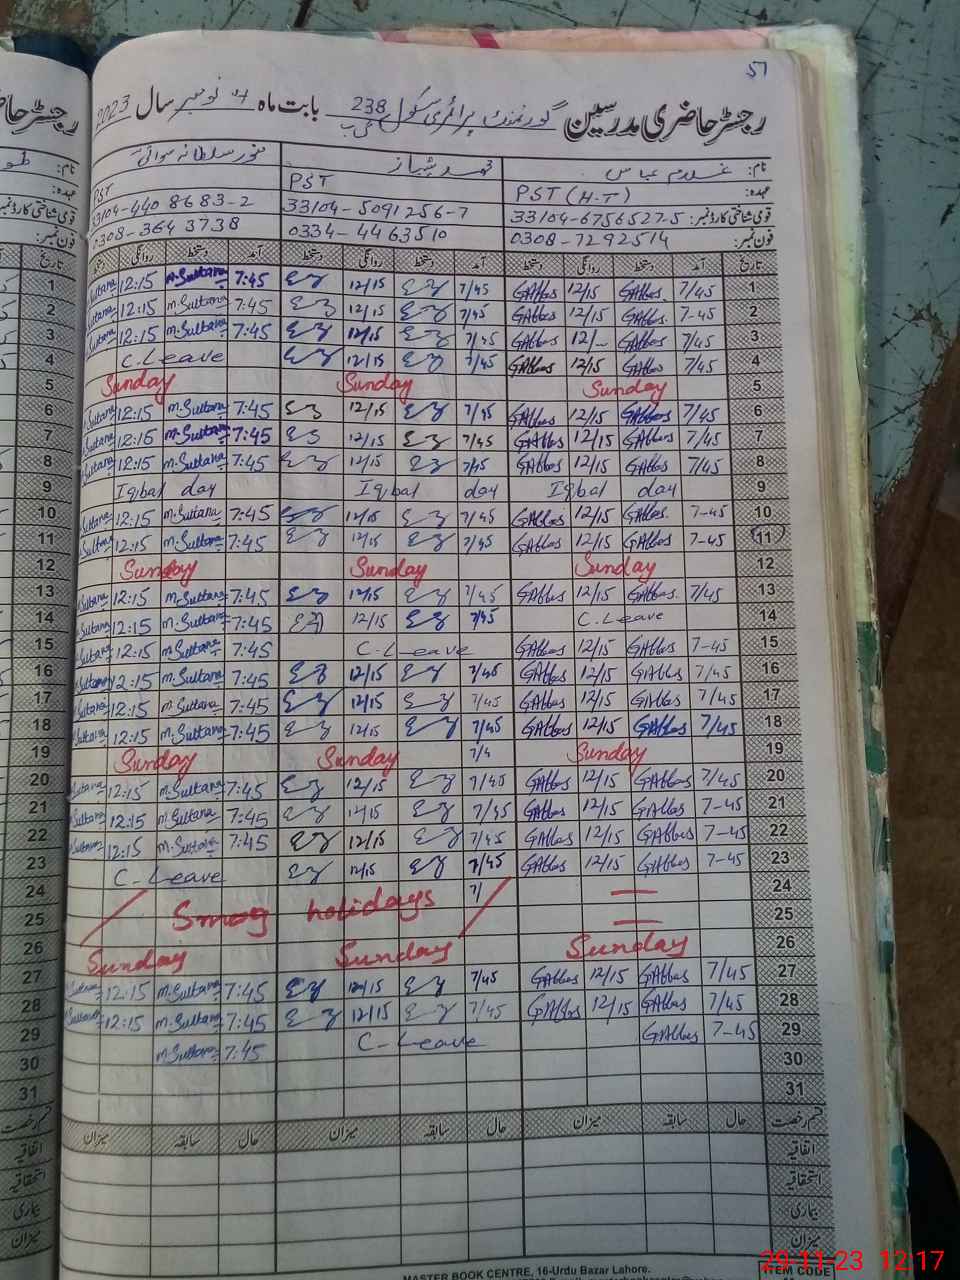 51
رجسٹر حاضری مدرسین گورنمنٹ پرائمری سکول 238 بابت ماہ نومبر سال 2023
نام: غلام عباس محمد شہباز
عہدہ: PST (H.T) PST PST
قومی شناختی کارڈ نمبر: 33104-6756527-5 33104-5091256-7 33104-4408683-2
فون نمبر: 0308-7292514 0334-4463510 0308-3643738
تاریخ آمد دستخط روانگی دستخط آمد دستخط روانگی دستخط آمد دستخط روانگی دستخط
1 7/45 GAbbas 12/15 GAbbas 7/45 12/15 7:45 M.Sultana 12:15 Sultana
2 7-45 GAbbas 12/15 GAbbas 7/45 12/15 7:45 M.Sultana 12:15 Sultana
3 7/45 GAbbas 12/ GAbbas 7/45 12/15 7:45 M.Sultana 12:15 Sultana
4 7/45 GAbbas 12/15 GAbbas 7/45 12/15 C.Leave
5 Sunday Sunday Sunday
6 7/45 GAbbas 12/15 GAbbas 7/45 12/15 7:45 M.Sultana 12:15 Sultana
7 7/45 GAbbas 12/15 GAbbas 7/45 12/15 7:45 M.Sultana 12:15 Sultana
8 7/45 GAbbas 12/15 GAbbas 7/45 12/15 7:45 M.Sultana 12:15 Sultana
9 Iqbal day Iqbal day Iqbal day
10 7-45 GAbbas 12/15 GAbbas 7/45 12/15 7:45 M.Sultana 12:15 Sultana
11 7-45 GAbbas 12/15 GAbbas 7/45 12/15 7:45 M.Sultana 12:15 Sultana
12 Sunday Sunday Sunday
13 7/45 GAbbas 12/15 GAbbas 7/45 12/15 7:45 M.Sultana 12:15 Sultana
14 C.Leave 7/45 12/15 7:45 M.Sultana 12:15 Sultana
15 7-45 GAbbas 12/15 GAbbas C.Leave 7:45 M.Sultana 12:15 Sultana
16 7/45 GAbbas 12/15 GAbbas 7/45 12/15 7:45 M.Sultana 12:15 Sultana
17 7/45 GAbbas 12/15 GAbbas 7/45 12/15 7:45 M.Sultana 12:15 Sultana
18 7/45 GAbbas 12/15 GAbbas 7/45 12/15 7:45 M.Sultana 12:15 Sultana
19 Sunday 7/4 Sunday Sunday
20 7/45 GAbbas 12/15 GAbbas 7/45 12/15 7:45 M.Sultana 12:15 Sultana
21 7-45 GAbbas 12/15 GAbbas 7/45 12/15 7:45 M.Sultana 12:15 Sultana
22 7-45 GAbbas 12/15 GAbbas 7/45 12/15 7:45 M.Sultana 12:15 Sultana
23 7-45 GAbbas 12/15 GAbbas 7/45 12/15 C-Leave
24 7/ Smog holidays
25
26 Sunday Sunday Sunday
27 7/45 GAbbas 12/15 GAbbas 7/45 12/15 7:45 M.Sultana 12:15 Sultana
28 7/45 GAbbas 12/15 GAbbas 7/45 12/15 7:45 M.Sultana 12:15 Sultana
29 7-45 GAbbas C-Leave 7:45 M.Sultana
30
31
قسم رخصت حال سابقہ میزان حال سابقہ میزان حال سابقہ میزان
اتفاقیہ
استحقاقیہ
بیماری
میزان
MASTER BOOK CENTRE, 16-Urdu Bazar Lahore.
ITEM CODE
29-11-23 12:17